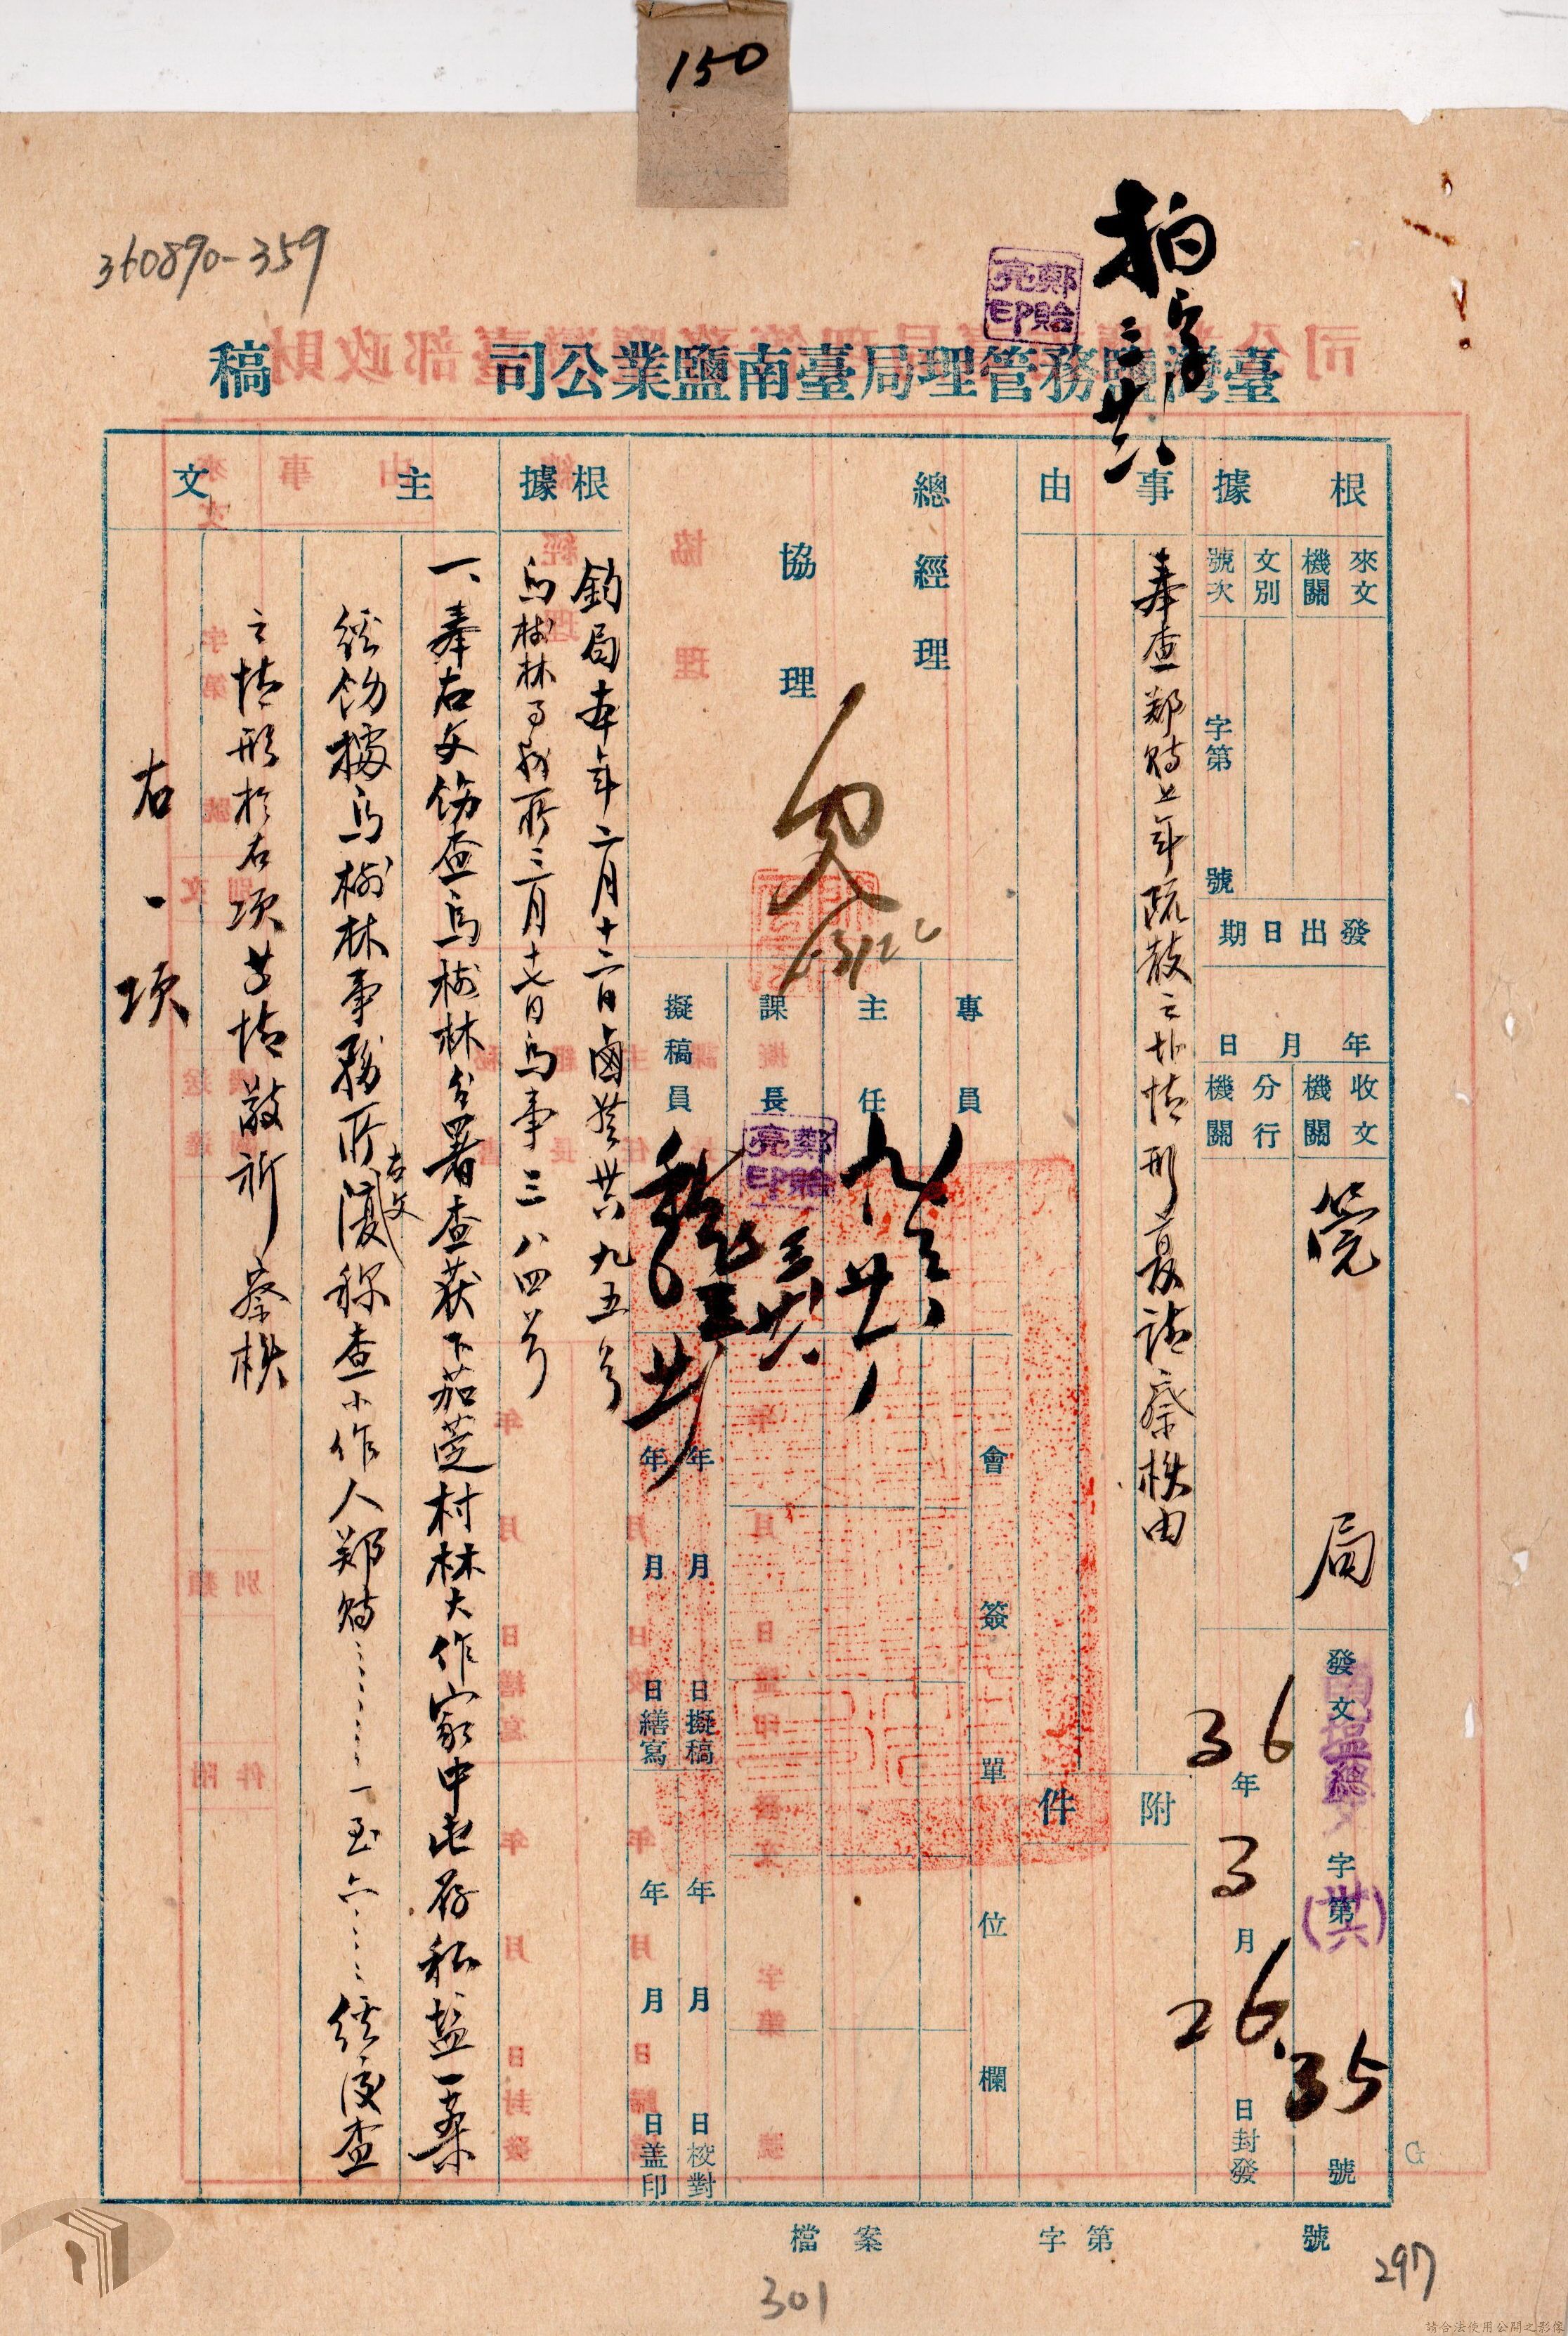 150
360890-359
拍字
三、廿六
鄭貽亮印
臺灣鹽務管理局臺南鹽業公司 稿
根據
來文機關
文別
號次
字第 號
發出日期
年 月 日
收文機關
管 局
分行機關
發文 字第 號
南塩總
(共六)
35
36年3月26日封發
事由
奉查鄭 年疏散之 情形 復請察核由
附件
總經理
協理
3/26
專員
主任
課長
鄭貽亮印
擬稿員
會簽單位欄
年 月 日擬稿
年 月 日繕寫
年 月 日校對
年 月 日盖印
根據
鈞局本年二月十二日鹵 廿六九五号
烏樹林事務所三月十七日烏事三八四号
主文
一、奉右文飭查烏樹林分署查获下茄萣村林大作家中屯存私盐一案
經飭據烏樹林事務所右文復称查小作人鄭 ………一至六……經復查
之情形於右項 情敬祈 察核
右一項
檔案 字第 號
301
297
G
請合法使用公開之影像